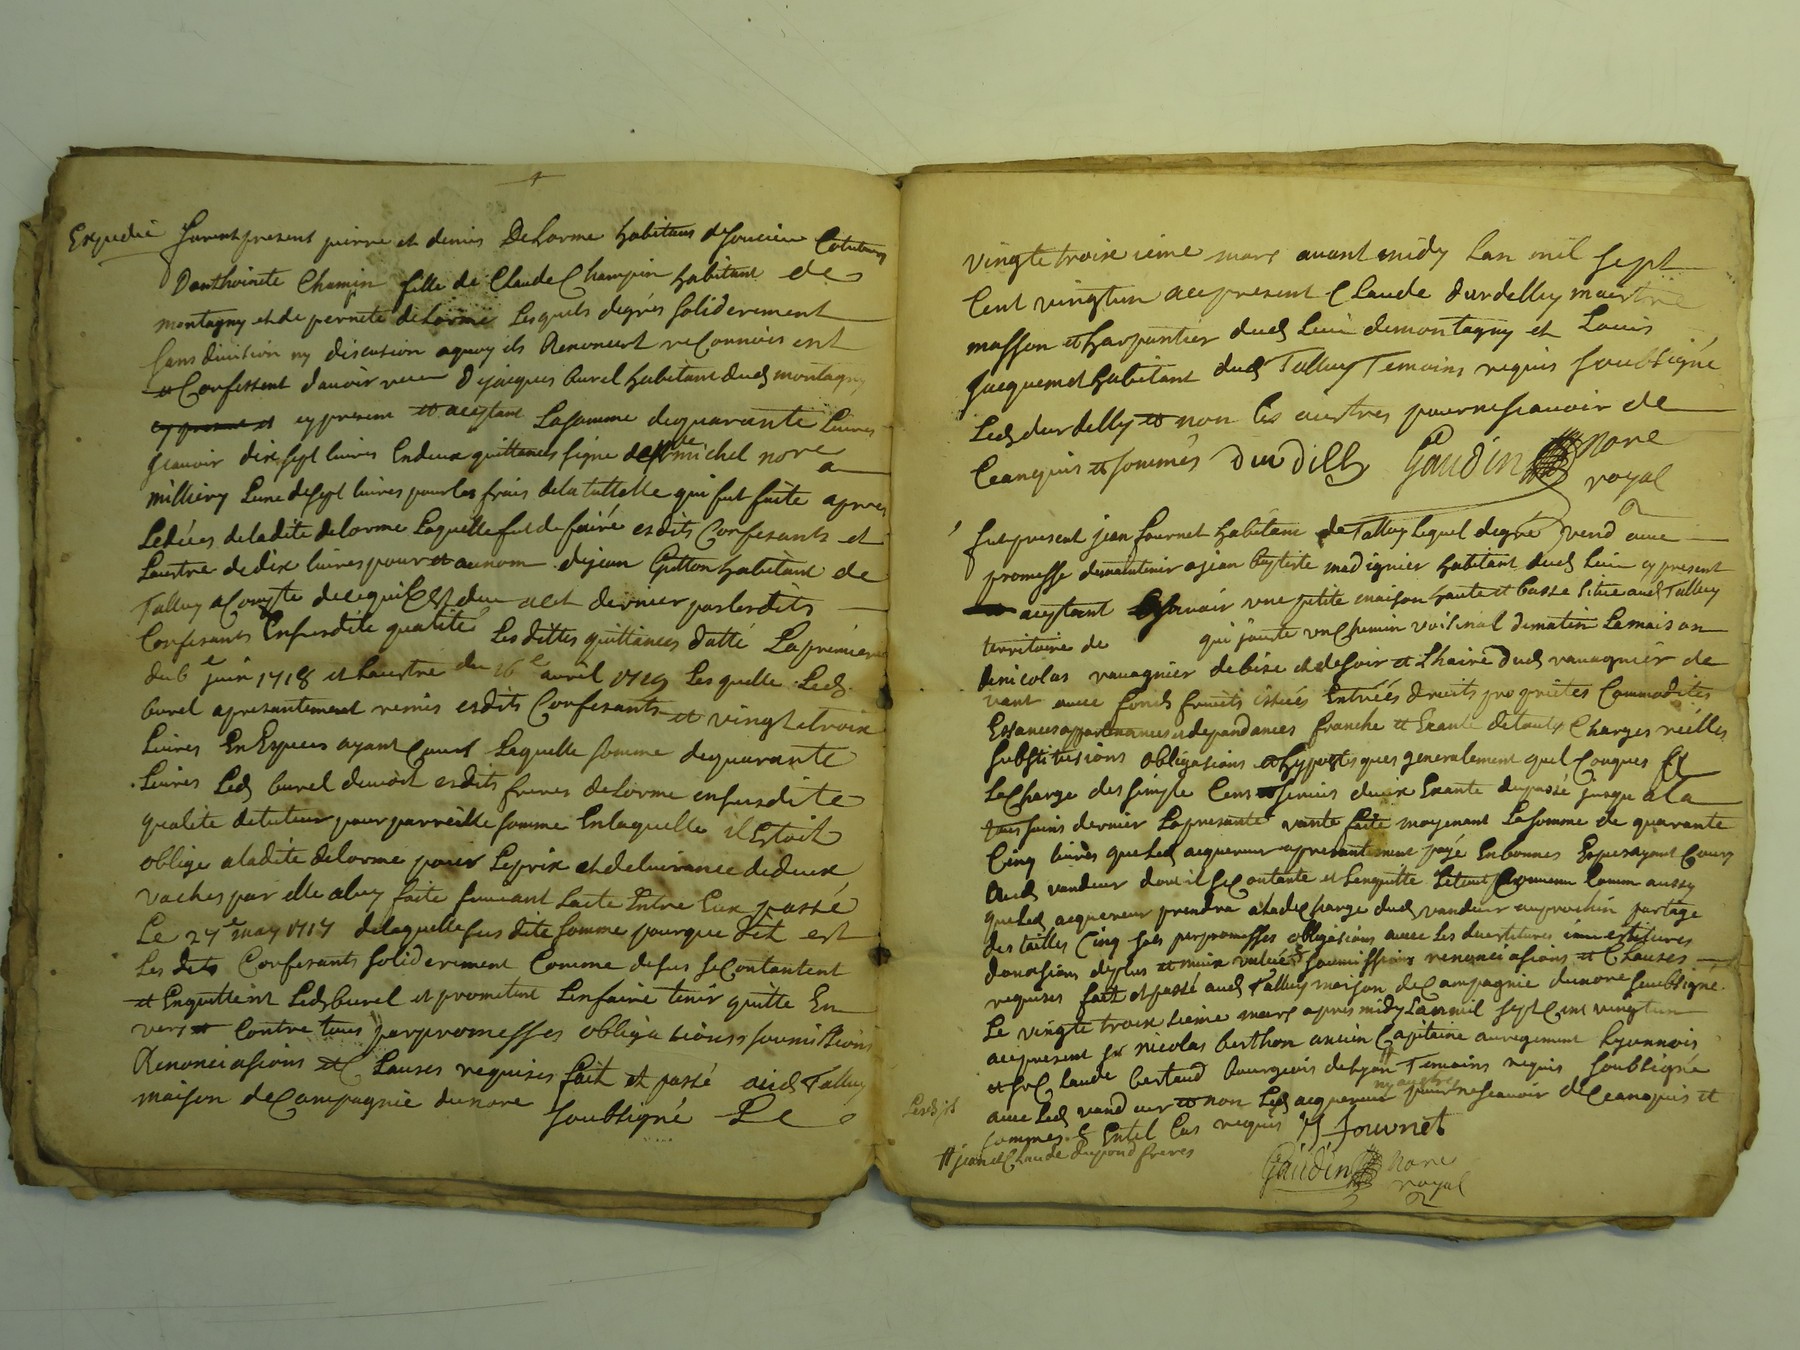 Expedié furent present pierre et denis Delorme habitans de Soucieu Cotuteurs
Danthoinete Champin fille de Claude Champin habitant de
montagny et de pernete delorme Lesquels de grés soliderement
sans division ny discution a quoy ils Renoncent reconnoissent
et Confessent d'avoir receu de jacques burel habitant dud montagny
cy present et aceptant La somme de quarante Livres
scavoir dix sept livres En deux quittances signe de Me michel nore a
milliery Lune de sept livres pour les frais de la tuttelle qui fut faite apres
Le déces de la dite delorme Laquelle fut de faire esdits Confesants et
Lautre de dix livres pour et au nom de jean Gutton habitant de
Talluy a Compte de ce qui Est deu a cet dernier par lesdits
Confesants En susdite qualité Les dittes quittances datté La premiere
du 6e juin 1718 et Lautre du 16e avril 1719 Les quelle Led
burel a presantement remis esdits Confesants et vingt et trois
Livres En Especes ayant Cours Laquelle somme de quarante
Livres Led burel devoit esdits freres delorme en susdite
qualite de tuteur pour pareille somme En laquelle il Estoit
oblige a ladite delorme pour Le prix et delivrance de deux
vaches par elle a luy faite suivant Lacte Entre Eux passé
Le 27e may 1717 de laquelle sus dite somme pour que dit est
Les dits Confesants soliderement Comme desus se Contantent
et En quittent Led burel et prometent Len faire tenir quitte En
vers et Contre tous par promesses obligations soumissions
Renonciasions et Clauses requises fait et passé aud Talluy
maison de Campagnie du nore soubsigné Le
vingte troisieme mars avant midy Lan mil sept
Cent vingtun acepresent Claude durdelly maistre
masson et Charpantier dud Lieu de montagny et Louis
Jacquemet habitant dud Talluy Temoins requis soubsigné
Led durdilly et non les autres pour ne scavoir de
Ceanquis et sommés Durdilly Gaudin nore
royal
fut present jean fournet habitant de Talluy Lequel de gré vend avec
promesse de maintenir a jean baptiste madignier habitant dud Lieu cy present
et aceptant Scavoir une petite maison haute et basse sitüe aud Talluy
territoire de qui jouste un Chemin voisinal de matin La maison
de nicolas ravagnier de bize et de soir et Lhaire dud ravagnier de
vant avec fonds fruits issües Entréés droits proprietes Commodites
Essances appartenances et depandances franche et Exante de touts Charges réélles
substitusions obligasions et hypotesques generalement quel Conques Et
La Charge des simple Cens et servis dieux Exante du passé jusque a la
tous saints dernier La presante vante faite moyenant La somme de quarante
Cinq livres que Led acquereur a presantement payé En bonnes Especes ayant Cours
Aud vandeur dont il se Contante et Len quitte
que Led acquereur prendra a la decharge dud vandeur au prochin partage
des tailles Cinq sols par promesses obligasions avec Les devestitures investitures
donasions de plus et mieux valüe soumissions renonciasions et Clauses
requises fait et passé aud Talluy maison de Campagnie du nore soubsigné
Le vingte troisieme mars apres midy Lan mil sept Cent vingtun
acepresent sr nicolas berthon ancien Capitaine au regiment Lyonnois
et sr Claude bertaud Bourgeois de Lyon Temoins requis soubsigné
avec Led vandeur et non Led acquereur pour ne scavoir de Ceanquis et
sommes Entel Cas requis J Journet
jean et Claude dupond freres
Gaudin nore
royal